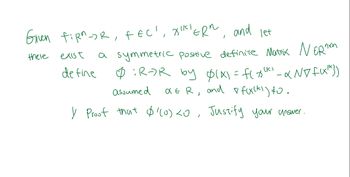 Given f: Rⁿ → R, f ∈ C¹, x⁽ᵏ⁾ ∈ Rⁿ, and let
there exist a symmetric positive definite Matrix N ∈ Rⁿˣⁿ
define ϕ: R→R by ϕ(α) = f(x⁽ᵏ⁾ - α N∇f(x⁽ᵏ⁾))
assumed α ∈ R, and ∇f(x⁽ᵏ⁾) ≠ 0.
y Proof that ϕ'(0) < 0, Justify your answer.